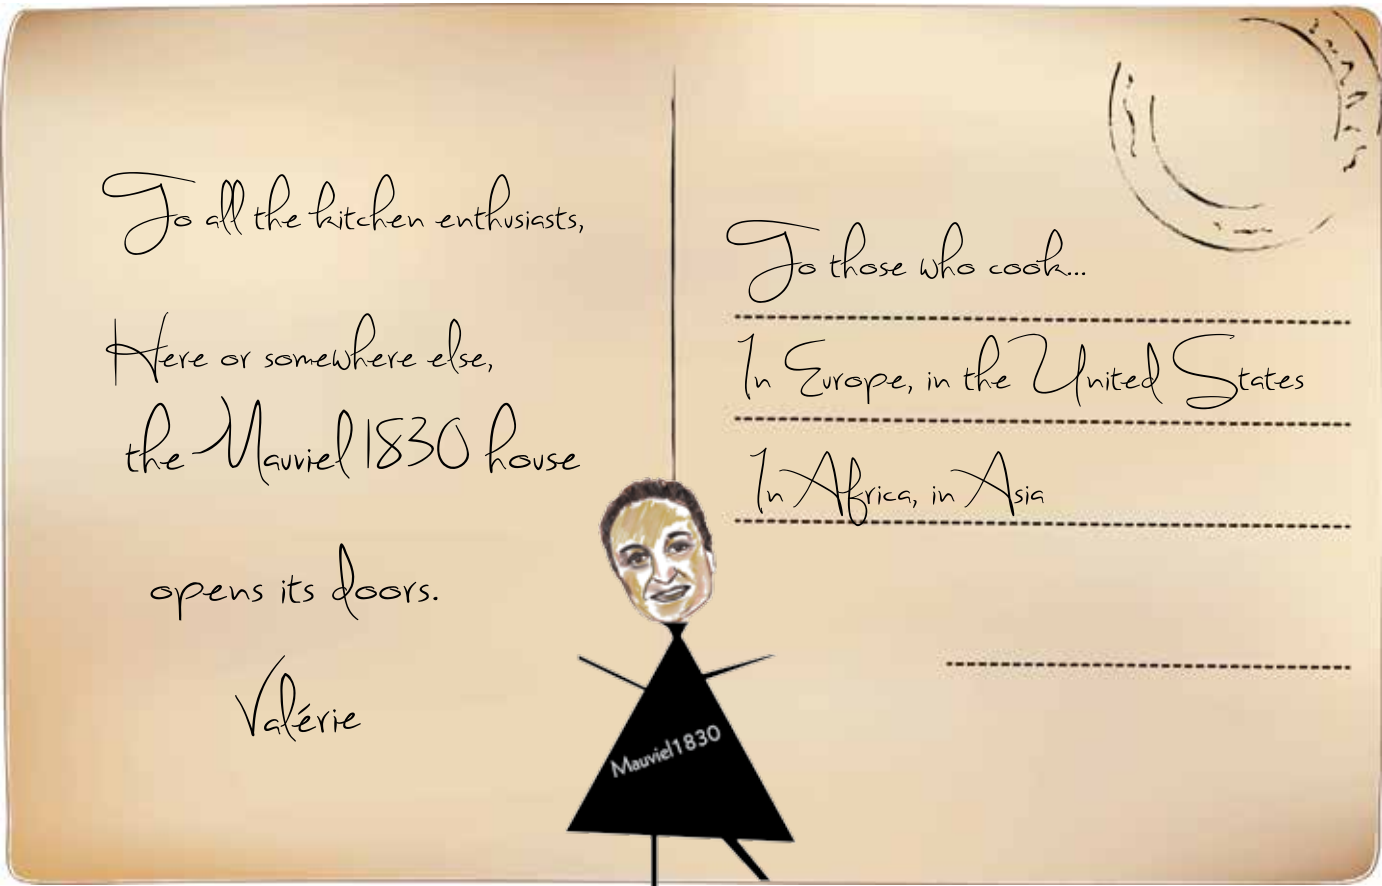 To all the kitchen enthusiasts,
Here or somewhere else,
the Mauviel 1830 house
opens its doors.
Valérie
To those who cook...
In Europe, in the United States
In Africa, in Asia
Mauviel1830